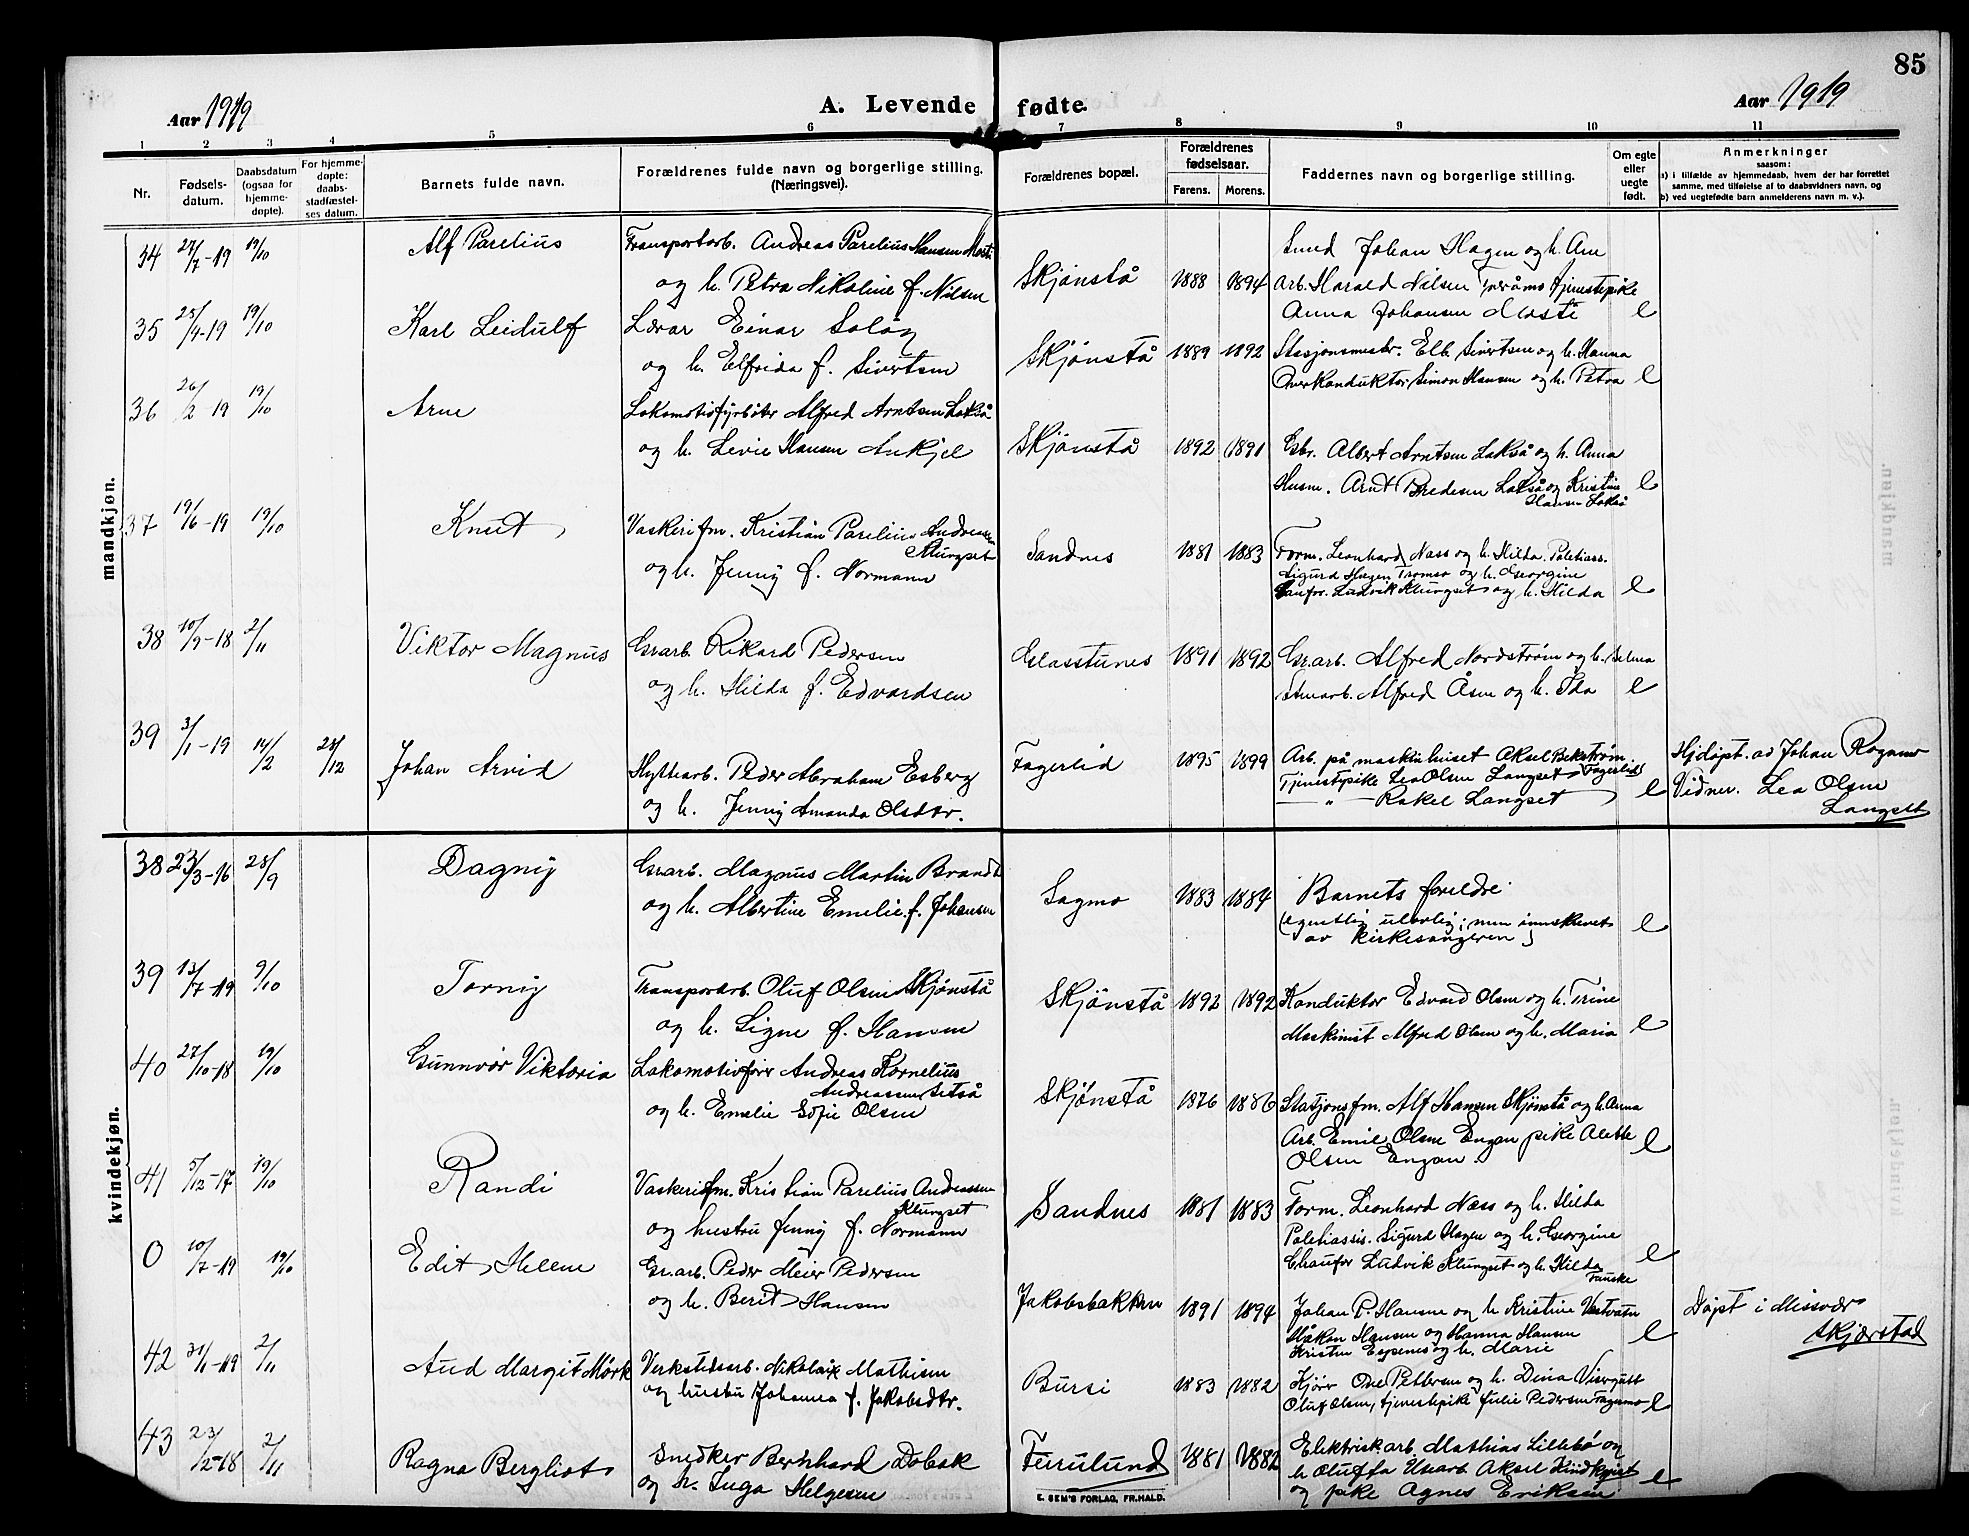 85
Aar 1919
A. Levende fødte.
Aar 1919
1 2 3 4 5 6 7 8 9 10 11
Nr.
Fødsels-
datum.
Daabsdatum
(ogsaa for
hjemme-
døpte).
For hjemme-
døpte:
daabs-
stadfæstel-
ses datum.
Barnets fulde navn.
Forældrenes fulde navn og borgerlige stilling.
(Næringsvei).
Forældrenes bopæl.
Forældrenes
fødselsaar.
Farens. Morens.
Faddernes navn og borgerlige stilling.
Om egte
eller
uegte
født.
Anmerkninger
saasom:
a) i tilfælde av hjemmedaab, hvem der har forrettet
samme, med tilføielse af to daabsvidners navn, og
b) ved uegtefødte barn anmelderens navn m. v.).
mandkjøn.
34 27/7-19 19/10 Alf Parelius Transportarb. Andreas Parelius Hansen
og h. Petra Nikoline f. Nilsen
Skjönstå 1888 1894
Smed Johan Hagen og h. Ane
Arb. Harald Nilsen tjenestepike
Anna Johansen e
35 25/4-19 19/10 Karl Leidulf Lærar Einar Soløy
og h. Elfrida f. Sivertsen
Skjönstå 1889 1892
Stasjonsmestr. Elb. Sivertsen og h. Hanna
Overkonduktor Simon Hansen og h. Petra e
36 26/2-19 19/10 Arne Lokomotivfyrbøter Alfred Arntsen Lakså
og h. Levie Hansen Ankjel
Skjönstå 1892 1891
Gbr. Albert Arntsen Lakså og h. Anna
Husm. Arnt Bredesen Lakså og Kristine
Hansen Lakså e
37 19/6-19 19/10 Knut Vaskerifm. Kristian Parelius Andreassen
Klungset
og h. Jenny f. Normann
Sandnes 1881 1883
Form. Leonhard Næss og h. Hilda
Sigurd Hagen Tromsø og h. Georgine
Ludvik Klungset og h. Hilda e
38 10/9-18 2/11 Viktor Magnus Gr.arb. Rikard Pedersen
og h. Hilda f. Edvardsen
Glasstunes 1891 1892
Gr.arb. Alfred Nordstrøm og h. Selma
Alfred Åsen og h. Ida e
39 3/1-19 14/2 28/12 Johan Arvid Hyttearb. Peder Abraham Esberg
og h. Jenny Amanda Olsdtr.
Fagerlid 1895 1899
Arb. på maskinhuset Aksel Bekstrøm
Tjenestepike Lea Olsen Langset Fagerlid
— " — Rakel Langset e
Hjdøpt. av Johan Rognmo
Vidner. Lea Olsen
Langset
kvindekjøn.
38 23/3-16 28/9 Dagny Gr.arb. Magnus Martin Brandt
og h. Albertine Emelie f. Johansen
Sagmo 1883 1884
Barnets foreldre
(egentlig ulovlig; men innskrevet
av kirkesangeren) e
39 13/7-19 9/10 Torny Transportarb. Oluf Olsen Skjønstå
og h. Signe f. Hansen
Skjönstå 1892 1892
Konduktør Edvard Olsen og h. Trine
Maskinist Alfred Olsen og h. Maria e
40 27/10-18 19/10 Gunnvør Viktoria Lokomotivfører Andreas Kornelius
Andreassen Setså
og h. Emelie Sofie Olsen
Skjönstå 1876 1886
Statjonsfm. Alf Hansen Skjønstå og h. Anna
Arb. Emil Olsen Engan pike Alette
Olsen Engan. e
41 5/12-17 19/10 Randi Vaskerifm. Kristian Parelius Andreassen
Klungset
og hustru Jenny f. Normann
Sandnes 1881 1883
Form. Leonhard Næss og h. Hilda
Sigurd Hagen og h. Georgine
Chauför Ludvik Klungset og h. Hilda
Fauske e
0 10/7-19 19/10 Edit Helene Gr.arb. Peder Meier Pedersen
og h. Berit Hansen
Jakobsbakken 1891 1894
Johan P. Hansen og h. Kristine Vestvatn
Håkon Hansen og Hanna Hansen
Kristen Espenes og h. Marie e
Døpt i Missvær
Skjærstad
42 31/1-19 2/11 Aud Margit Mørk Verkstedsarb. Nikolai Mathisen
og hustru Johanna f. Jakobsdtr.
Bursi 1883 1882
Kjører Ove Pettersen og h. Dina
Oluf Olsen, tjenestepike Julie Pedersen Fagermo e
43 23/2-18 2/11 Ragna Bergliot Snedker Bernhard Dobak
og h. Inga Helgesen
Furulund 1881 1882
Elektrisk.arb. Mathias Lillebø og
h. Oluffa Aksel Lindkvist
og pike Agnes Eriksen e
E. SEM'S FORLAG, FR.HALD.